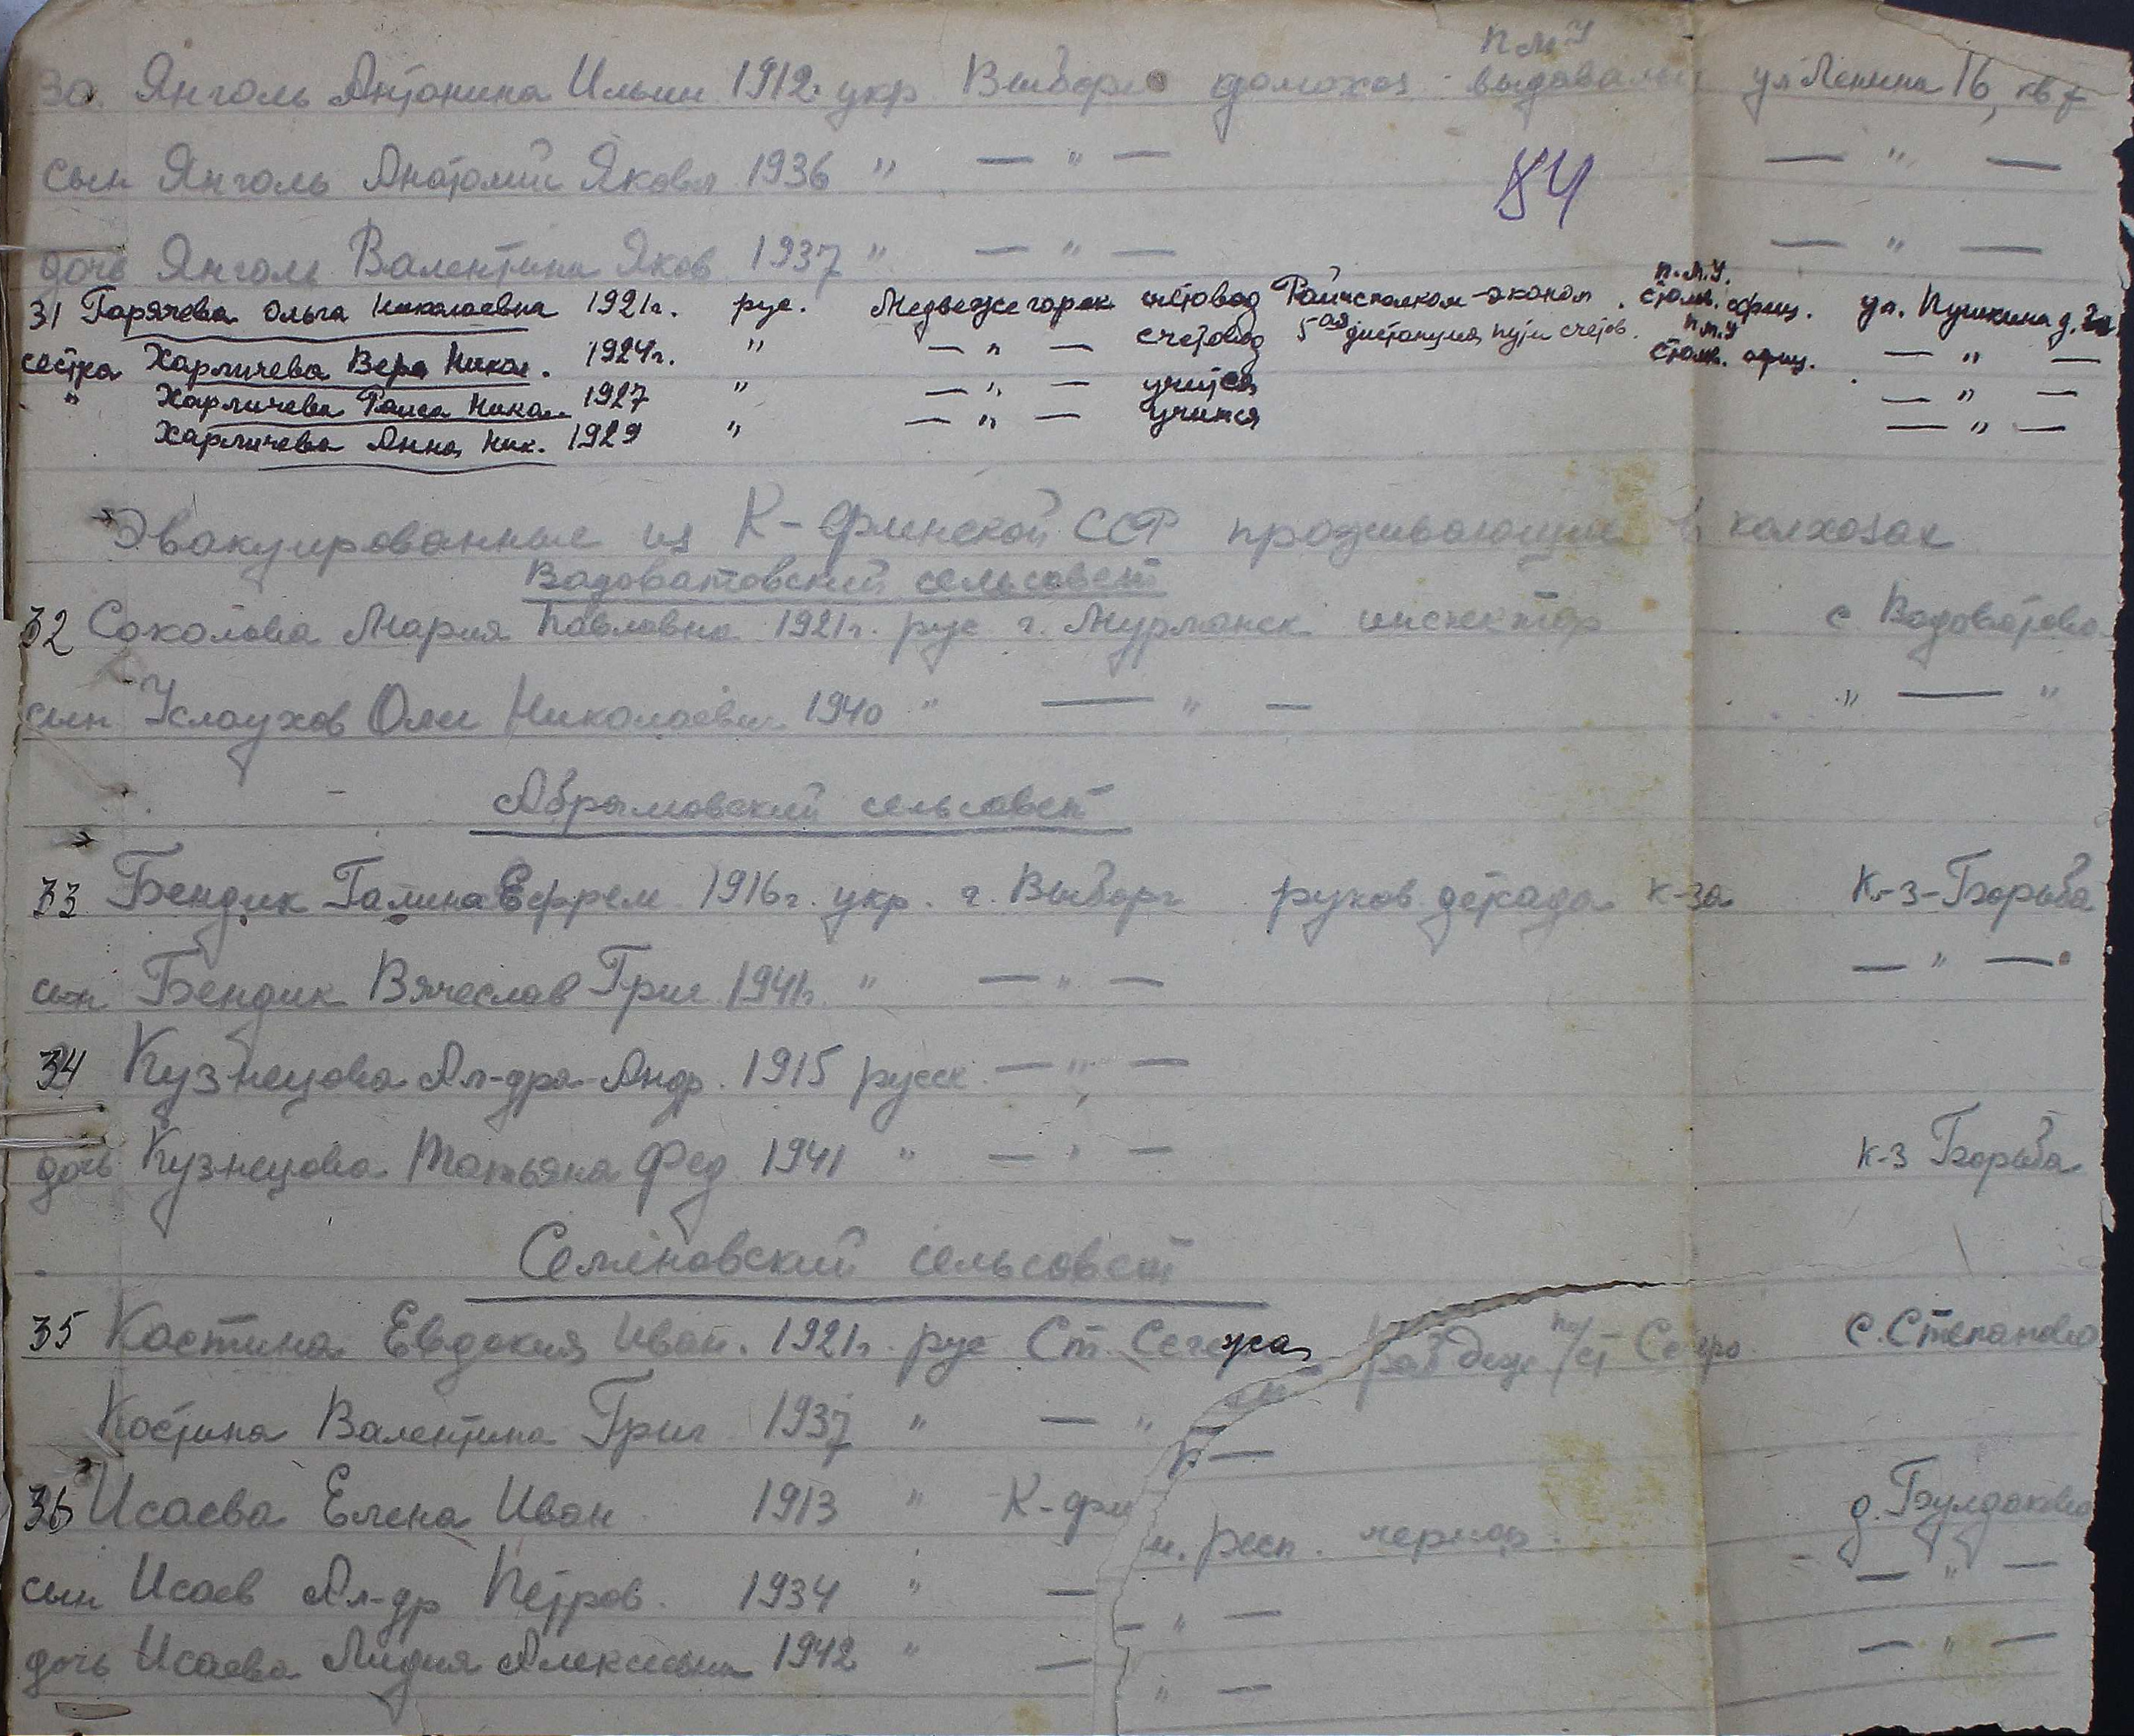 П М У
30. Янголь Антонина Ильин 1912. укр Выборг домохоз. выдавали ул Ленина 16, кв 7
сын Янголь Анатолий Яковл 1936 " — " — — " —
84
дочь Янголь Валентина Яков 1937 " — " — — " —
П.М.У.
31 Горячева Ольга Николаевна 1921г. рус. Медвежегорск счетовод Райисполком-эконом. столов. офиц. ул. Пушкина д.
П.М.У
сестра Харличева Вера Никол. 1924г. " — " — счетовод 5ая дистанция пути счетов. столов. офиц. — " —
" Харличева Раиса Никол. 1927 " — " — учится — " —
Харличева Анна Ник. 1929 " — " — учится — " —
Эвакуированные из К-Финской ССР проживающие в колхозах
Вадоватовский сельсовет
32 Соколова Мария Павловна 1921г. рус г. Мурманск инспектор с Вадоватово
сын Услаухов Оли Николаевич 1940 " — " — " — "
Абрамовский сельсовет
33 Бендик Галина Ефрем 1916г. укр. г. Выборг руков детсада к-за К-з-Борьба
сын Бендик Вячеслав Григ 1941г. " — " — — " —
34 Кузнецова Ал-дра Андр. 1915 русск. — " —
дочь Кузнецова Татьяна Фед 1941 " — " — к-з Борьба
Семеновский сельсовет
35 Костина Евдокия Иван. 1921г. рус Ст. Сегежа с. Степаново
Костина Валентина Григ 1937 " — " —
36 Исаева Елена Иван 1913 " К-фин. респ. чернор. д. Булдаково
сын Исаев Ал-др Петров. 1934 " — " — — " —
дочь Исаева Лидия Алексеевна 1942 " — " — — " —